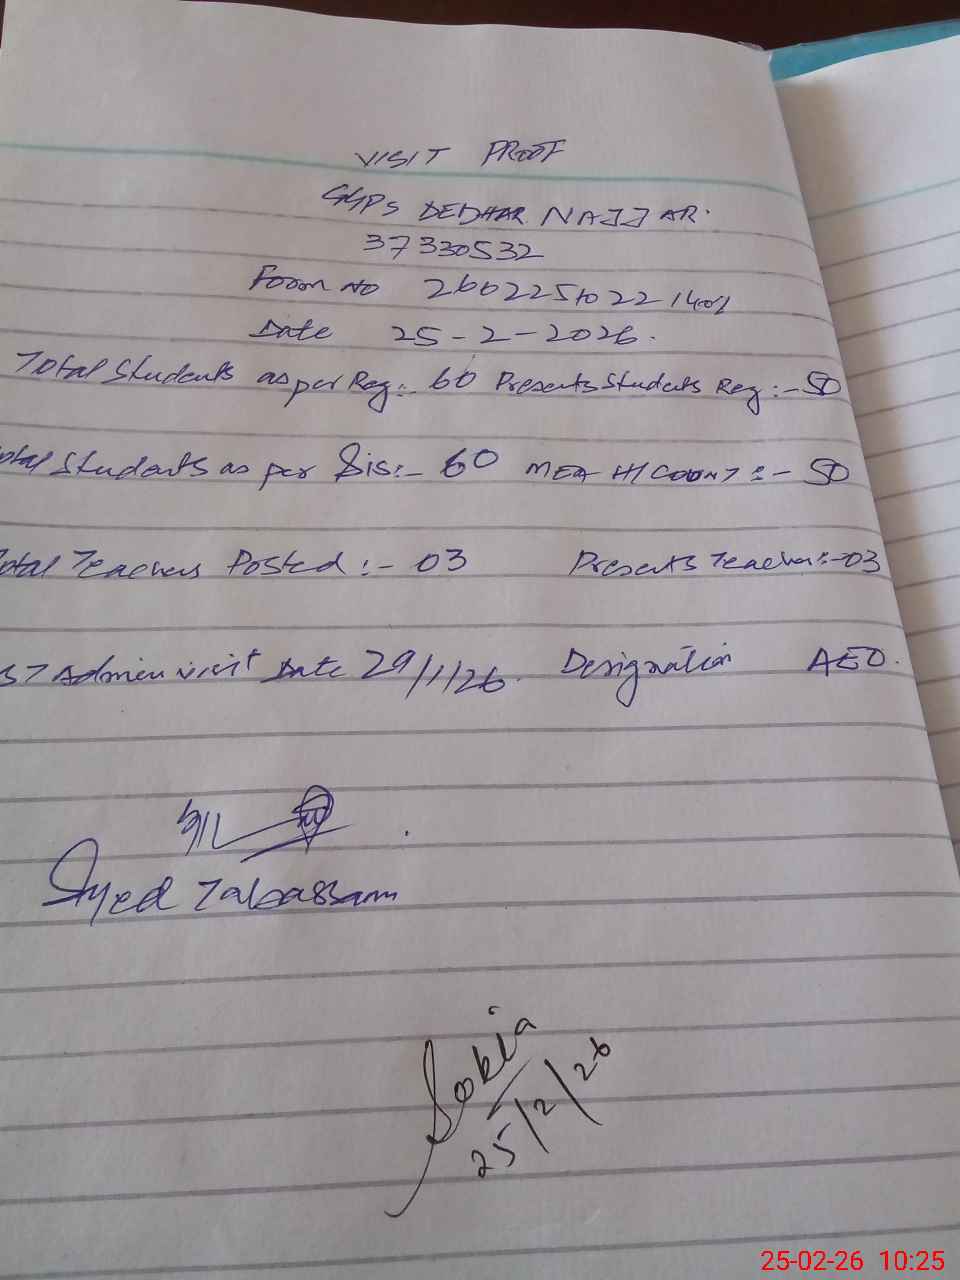 VISIT PROOF
GGPS DEDHAR NAJJAR.
37330532
Form No 26022510221401
Date 25-2-2026.
Total Students as per Reg:- 60 Presents Students Reg:- 50
otal Students as per Sis:- 60 MEA H/COUNT:- 50
otal Teachers Posted:- 03 Presents Teacher:- 03
ST Admin visit Date 29/1/26. Designation AEO.
Syed Tabassam
25/2/26
25-02-26 10:25